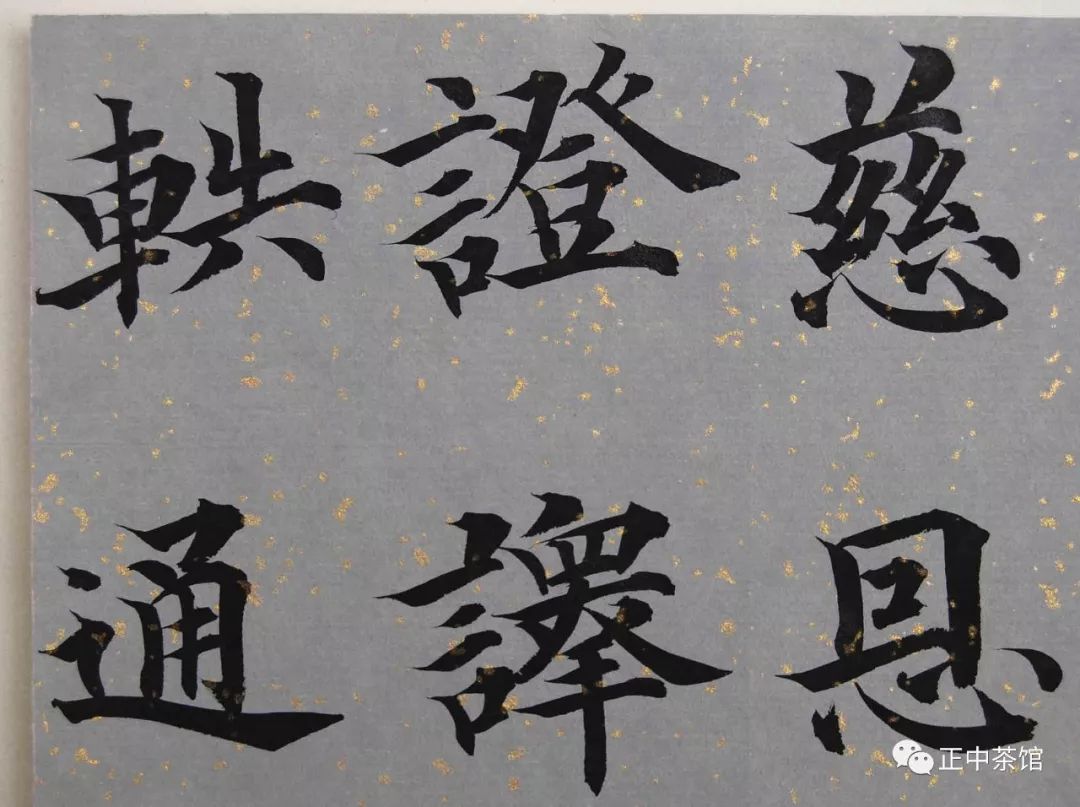 慈恩
證譯
通
正中茶馆